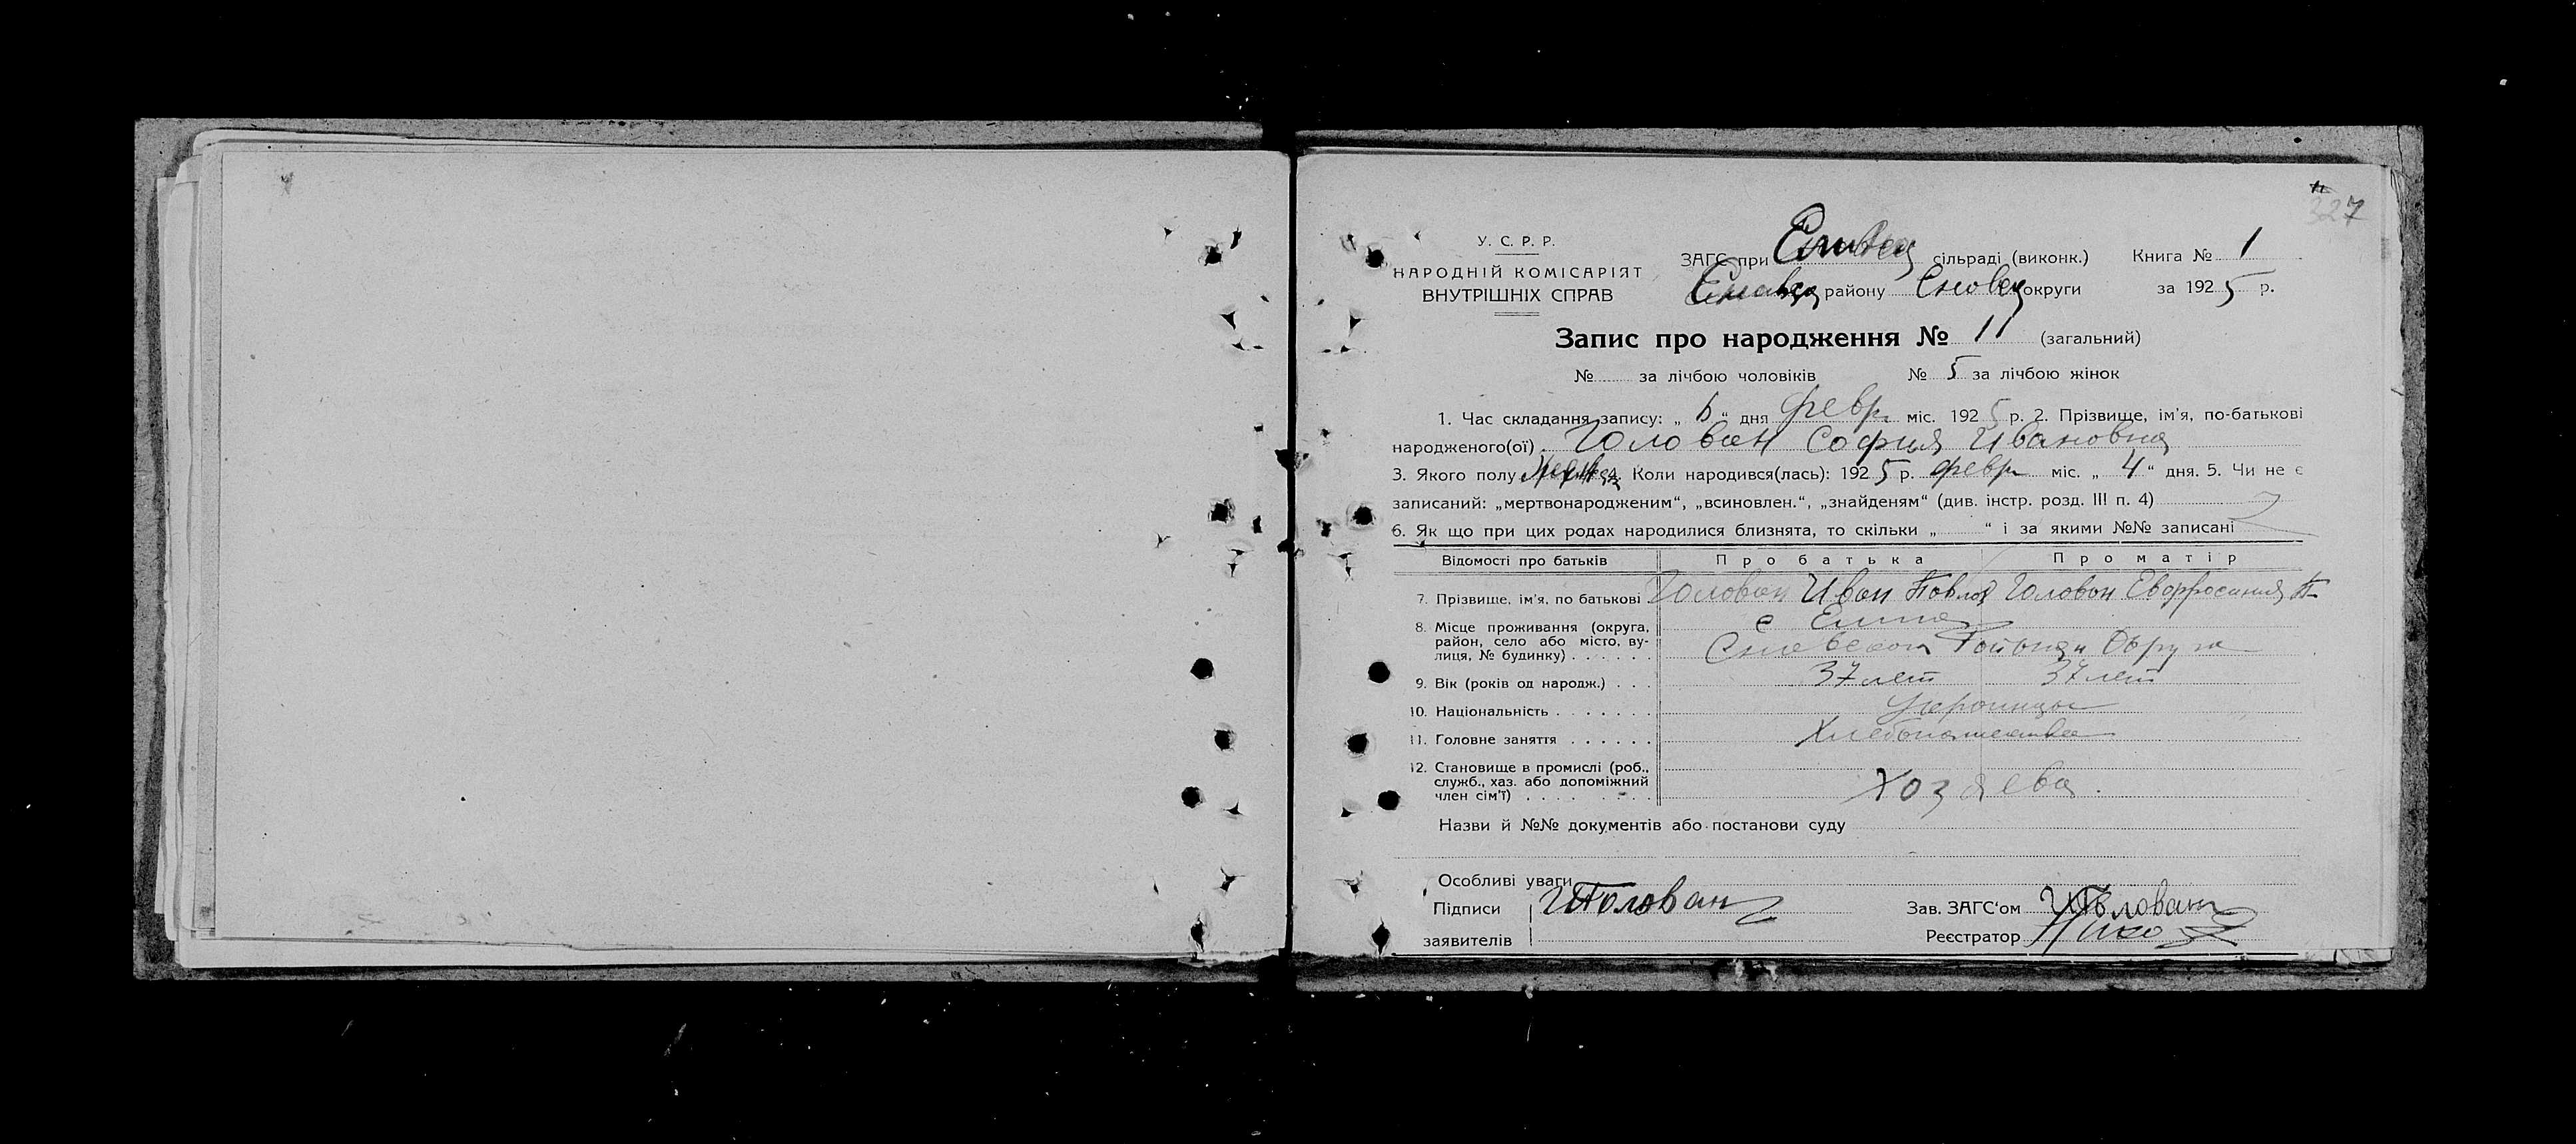 327
У. С. Р. Р.
НАРОДНІЙ КОМІСАРІЯТ
ВНУТРІШНІХ СПРАВ
ЗАГС при сільраді (виконк.) Книга № 1
району Сновск округи за 1925 р.
Запис про народження № 11 (загальний)
№ за лічбою чоловіків № 5 за лічбою жінок
1. Час складання запису: „ “ дня февр міс. 1925 р. 2. Прізвище, ім'я, по-батькові
народженого(ої) Голован София Ивановна
3. Якого полу 4. Коли народився(лась): 1925 р. февр міс. „ 4 “ дня. 5. Чи не є
записаний: „мертвонародженим“, „всиновлен.“, „знайденям“ (див. інстр. розд. III п. 4)
6. Як що при цих родах народилися близнята, то скільки „ “ і за якими №№ записані
Відомості про батьків Про батька Про матір
7. Прізвище, ім'я, по батькові Голован Иван Павлов Голован Евфросиния П
8. Місце проживання (округа, район, село або місто, вулиця, № будинку) с Елина
9. Вік (років од народж.) 37 лет 37 лет
10. Національність Украинцы
11. Головне заняття
12. Становище в промислі (роб., служб., хаз. або допоміжний член сім'ї) хозяева.
Назви й №№ документів або постанови суду
Особливі уваги
Підписи заявителів Голован
Зав. ЗАГС'ом Голован
Реєстратор